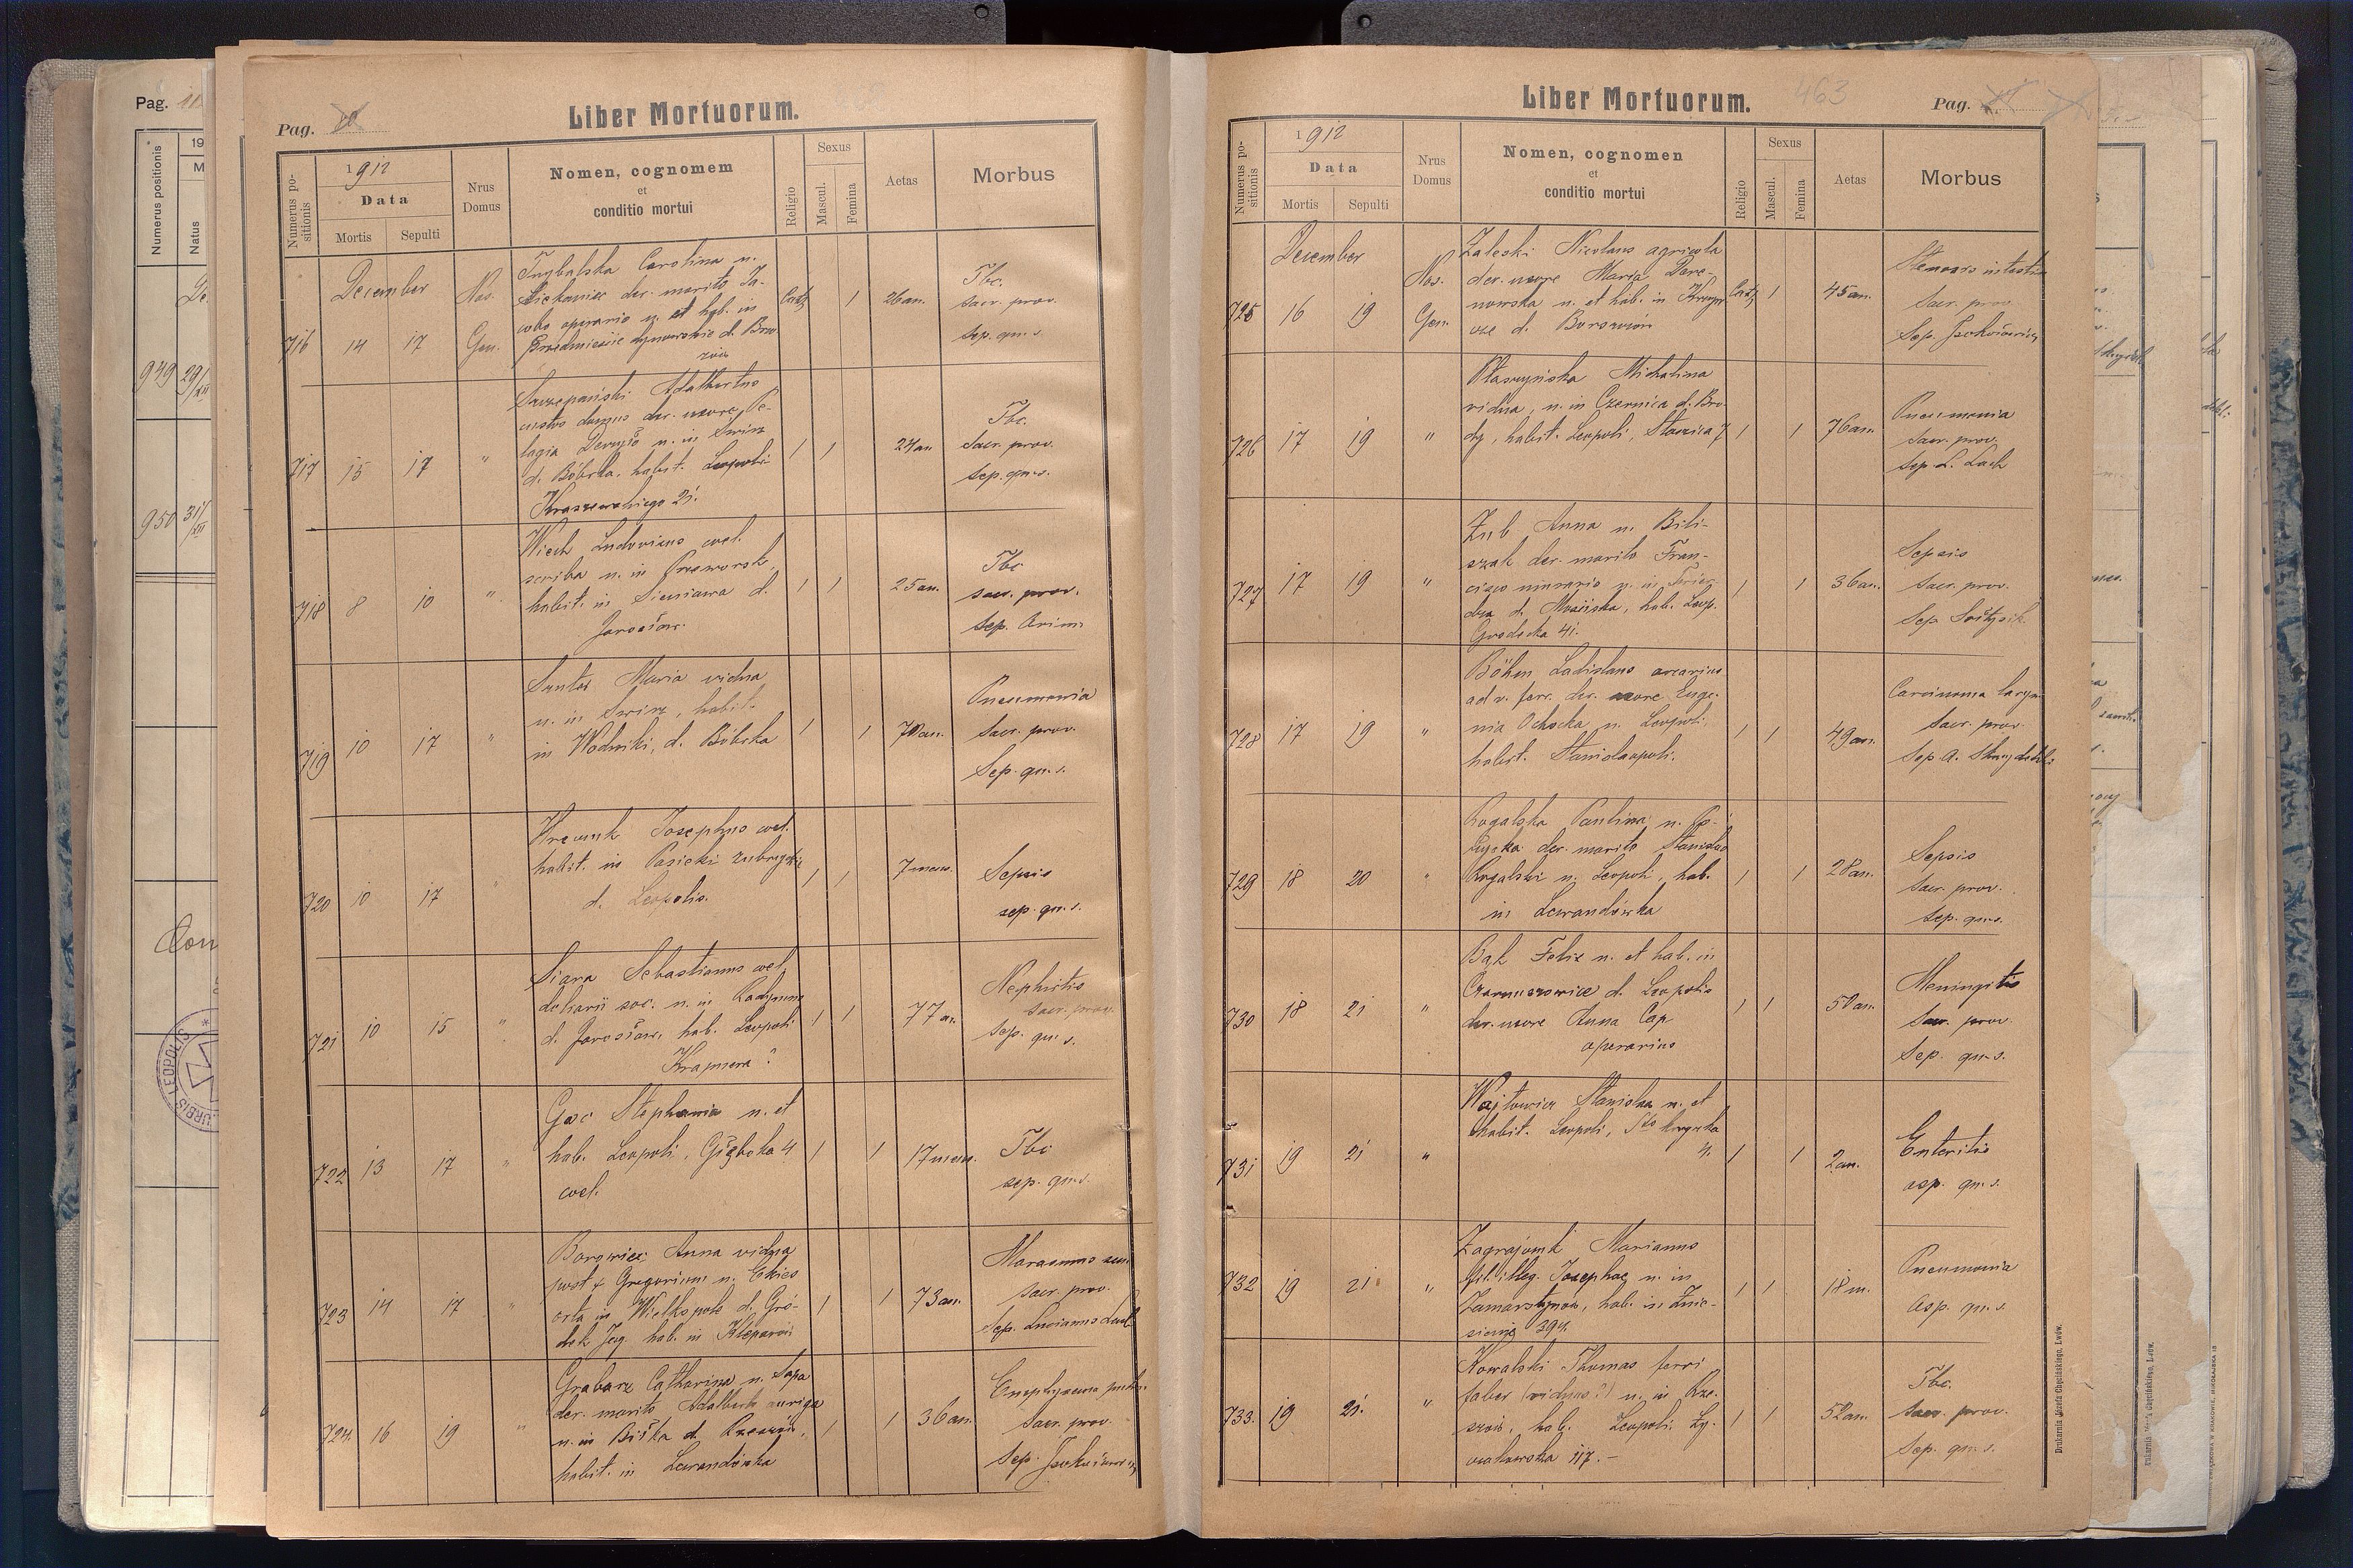 Pag.
Numerus positionis
19
M
Natus
De
949 29/XII
950 31/XII
Con
URBIS LEOPOLIS
Pag. 10
Liber Mortuorum.
Numerus positionis
1912
Data
Mortis
Sepulti
Nrus Domus
Nomen, cognomem
et
conditio mortui
Religio
Sexus
Mascul.
Femina
Aetas
Morbus
December
Nos.
Gen.
716 14 17
Trybalska Carolina n.
der. marito Ja-
cobo operario n. et hab. in
Przedmieście dynowskie d. Brzo
zów
Cath. 1 26 an.
Tbc.
sacr. prov.
sep. qu. s.
717 15 17 "
Szczepański Adalbertus
custos domus der. uxore Pe-
lagia n. in Swirz
d. Bóbrka, habit. Leopoli
Kraszewskiego 21.
1 1 24 an.
Tbc.
sacr. prov.
sep. qu. s.
718 8 10 "
Wiech Ludovicus coel.
scriba n. in Przeworsk,
habit. in Sieniawa d.
Jarosław.
1 1 25 an.
Tbc
sacr. prov.
sep.
719 10 17 "
Maria vidua
n. in Swirz, habit.
in Wodniki, d. Bóbrka
1 1 70 an.
Pneumonia
sacr. prov.
Sep. qu. s.
720 10 17 "
Josephus coel.
habit. in Pasieki zubrzyckie
d. Leopolis.
1 1 7 mens.
Sepsis
sep. qu. s.
721 10 15 "
Siara Sebastianus coel.
n. in Radymno
d. Jarosław, hab. Leopoli
1 1 77 an.
Nephritis
sacr. prov.
sep. qu. s.
722 13 17 "
Gac Stephania n. et
hab. Leopoli, Głęboka 4
coel.
1 1 17 mens.
Tbc
sep. qu. s.
723 14 17 "
Anna vidua
post † Gregorium n.
orta in Wielkopole d. Gró-
dek Jag. hab. in Kleparów
1 1 73 an.
Marasmus sen.
sacr. prov.
sep. Lucianus
724 16 19 "
Grabarz Catharina n. Sapa
der. marito Adalberto auriga
n. in d. Rzeszów,
habit. in Lewandówka
1 1 36 an.
Emphysema pulm.
sacr. prov.
sep.
Liber Mortuorum.
463
Pag.
Numerus positionis
1912
Data
Mortis
Sepulti
Nrus Domus
Nomen, cognomen
et
conditio mortui
Religio
Sexus
Mascul.
Femina
Aetas
Morbus
December
Nos.
Gen.
725 16 19
Zaleski Nicolaus agricola
der. uxore Maria Dere-
nowska n. et hab. in
d. Borszczów
Cath. 1 45 an.
Stenosis intestin
sacr. prov.
Sep.
726 17 19 "
Ptaszyńska Michalina
vidua, n. in Czernica d. Bro-
dy, habit. Leopoli, 7
1 1 76 an.
Pneumonia
sacr. prov.
sep. L. Lach
727 17 19 "
Zub Anna n. Bili-
szak der. marito Fran-
cisco n. in
d. Mościska, hab. Leop.
Grodecka 41.
1 1 36 an.
Sepsis
sacr. prov.
Sep.
728 17 19 "
Böhm Ladislaus
ad v. ferr. der. uxore Euge-
nia Ochocka n. Leopoli,
habit. Stanislaopoli.
1 1 49 an.
Carcinoma laryn
sacr. prov.
Sep. A.
729 18 20 "
Rogalska Paulina n.
der. marito Stanislao
Rogalski n. Leopoli, hab.
in Lewandówka
1 1 28 an.
Sepsis
sacr. prov.
sep. qu. s.
730 18 21 "
Bąk Felix n. et hab. in
Czarnuszowice d. Leopolis
der. uxore Anna Cap
operarius
1 1 50 an.
Meningitis
sacr. prov.
sep. qu. s.
731 19 21 "
Wojtowicz Stanislaa n. et
habit. Leopoli, Sto krzyska
4.
1 1 2 an.
Enteritis
asp. qu. s.
732 19 21 "
Marianus
fil. illeg. Josephae n. in
Zamarstynów, hab. in Znie-
sienie 394.
1 1 18 m.
Pneumonia
asp. qu. s.
733. 19 21. "
Kowalski Thomas ferri
faber (viduus?) n. in Rze-
szów, hab. Leopoli, Ły-
czakowska 117. —
1 1 52 an.
Tbc.
sacr. prov.
sep. qu. s.
Drukarnia Józefa Chęcińskiego, Lwów.